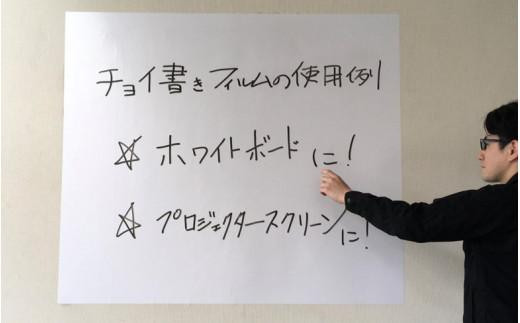 チョイ書きフィルムの使用例
☆ ホワイトボードに!
☆ プロジェクタースクリーンに!